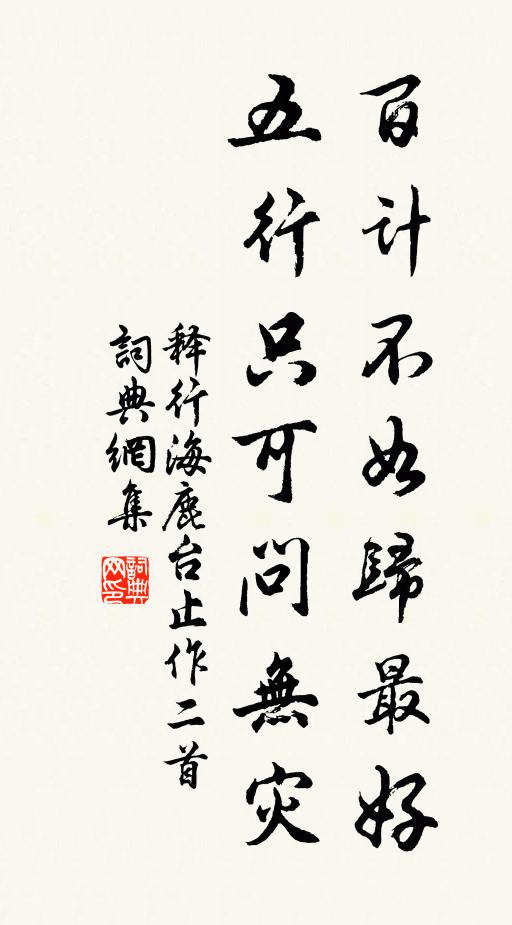 百计不如歸最好
五行只可問無灾
释行海鹿台止作二首
詞典網集
詞典
网印